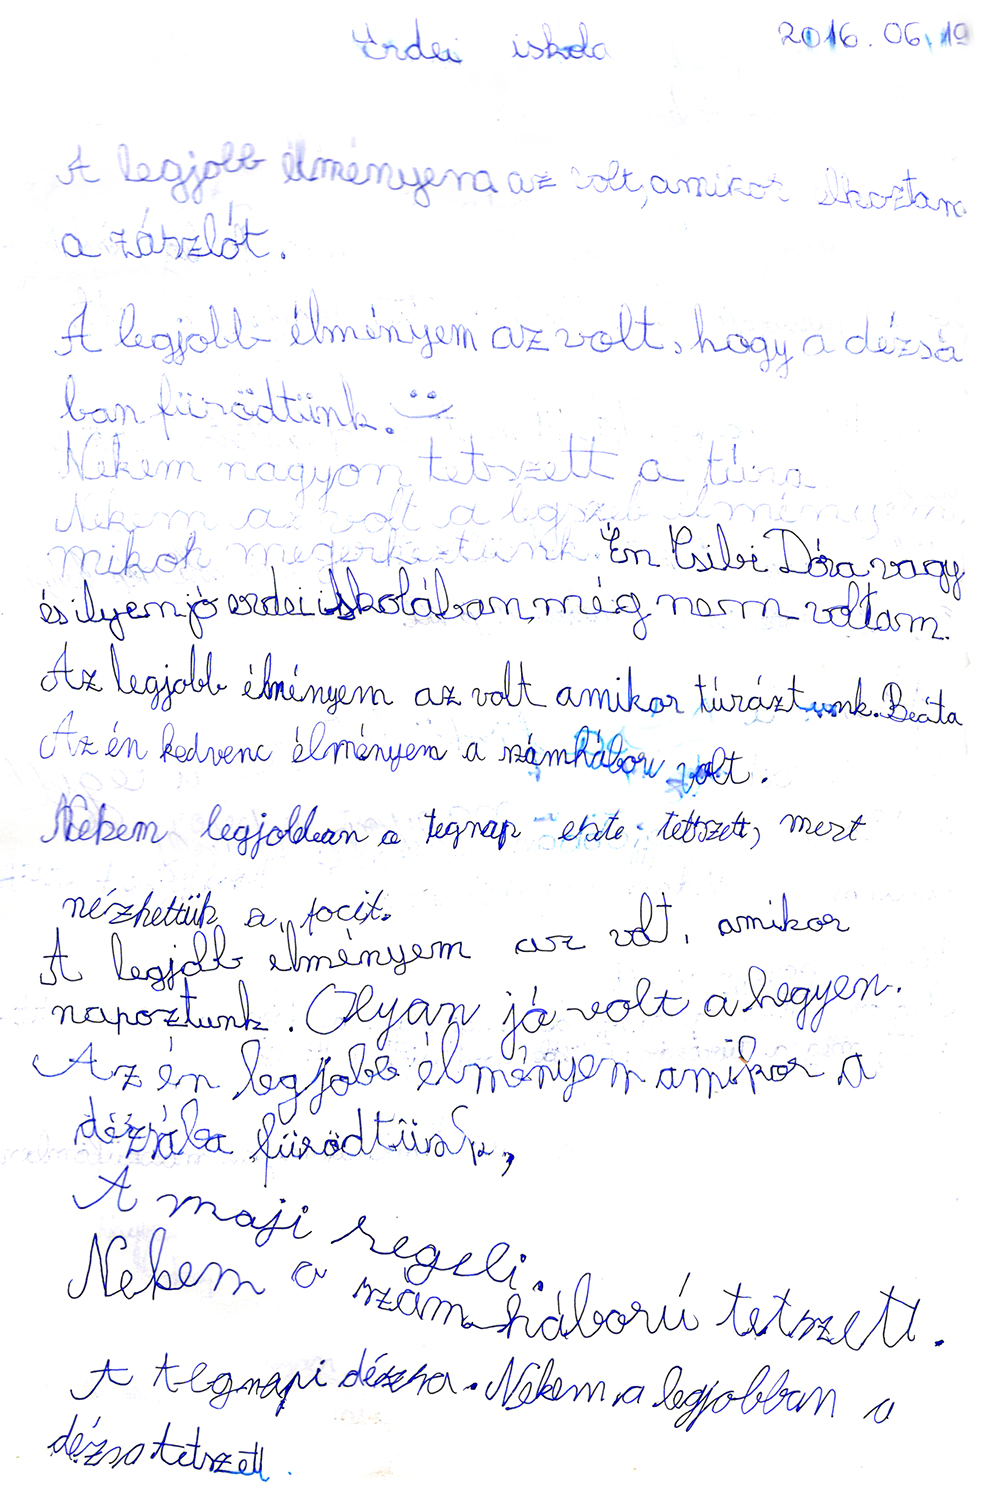 Erdei iskola 2016.06.19
A legjobb élményem az volt, amikor
a zászlót.
A legjobb élményem az volt, hogy a dézsá
ban fürödtünk. :)
Nekem nagyon tetszett a túra
Nekem az volt a legszebb élményem,
mikoh megérkeztünk. Én Csibi Dóra vagy
és ilyen jó erdei iskolában, még nem voltam.
Az legjobb élményem az volt amikor túráztunk. Beáta
Az én kedvenc élményem a számháború volt.
Nekem legjobban a tegnap este tettszett, mert
nézhettük a focit.
A legjobb élményem az volt, amikor
napoztunk. Olyan jó volt a hegyen.
Az én legjobb élményem amikor a
dézsába fürödtünk,
A maji regeli.
Nekem a számháború tetszett.
A tegnapi dézsa. Nekem a legjobban a
dézsa tetszett.